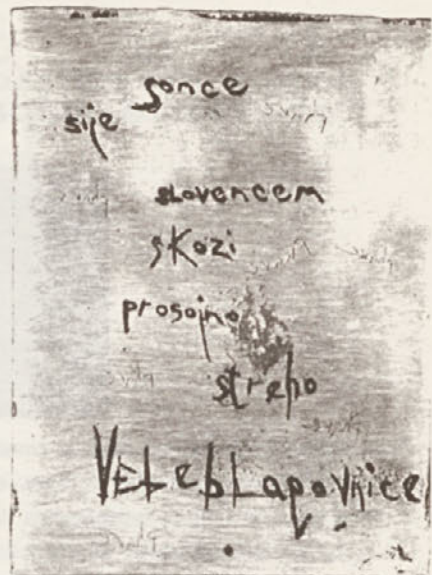 sonce
sije
slovencem
skozi
prosojno
streho
VELebLagovnice